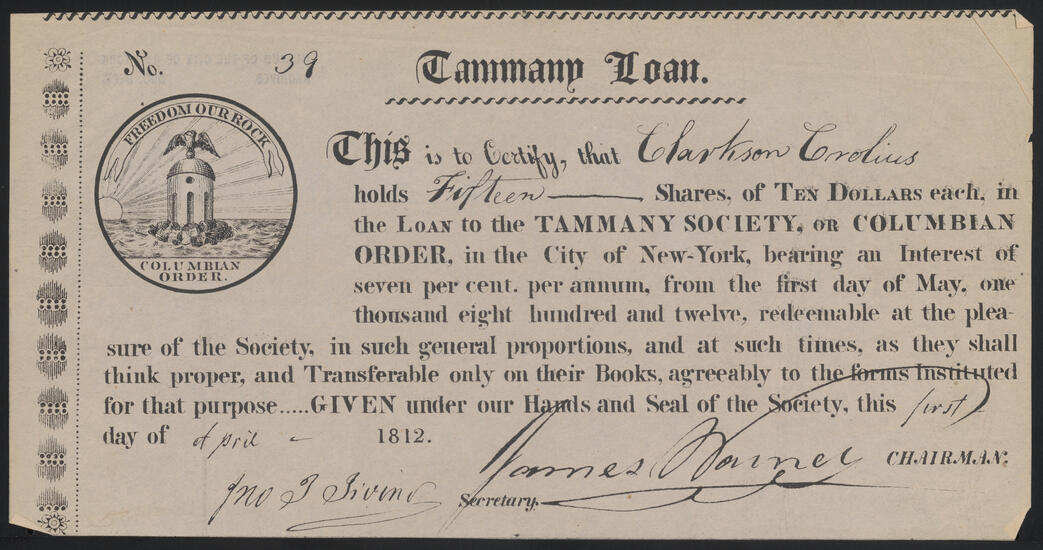 No. 39 Tammany Loan.
FREEDOM OUR ROCK
COLUMBIAN
ORDER.
This is to Certify, that Clarkson Crolius
holds Fifteen Shares, of TEN DOLLARS each, in
the LOAN to the TAMMANY SOCIETY, OR COLUMBIAN
ORDER, in the City of New-York, bearing an Interest of
seven per cent. per annum, from the first day of May, one
thousand eight hundred and twelve, redeemable at the plea-
sure of the Society, in such general proportions, and at such times, as they shall
think proper, and Transferable only on their Books, agreeably to the forms instituted
for that purpose.....GIVEN under our Hands and Seal of the Society, this first
day of April - 1812.
James CHAIRMAN.
Jno Secretary.